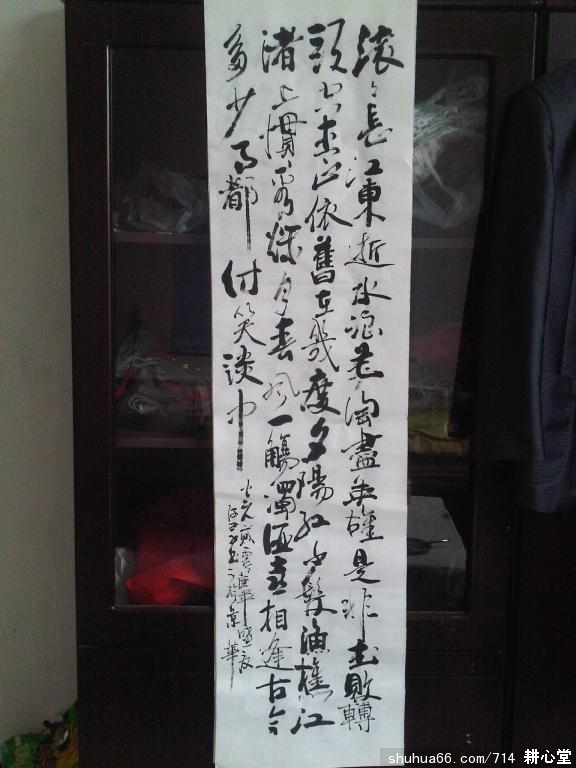 滚〻長江東逝水浪花淘盡英雄是非成敗轉
頭空青山依舊在幾度夕陽紅白髮漁樵江
渚上慣看秋月春風一觴濁酒喜相逢古今
多少事都付笑談中
京華
shuhua66.com/714 耕心堂